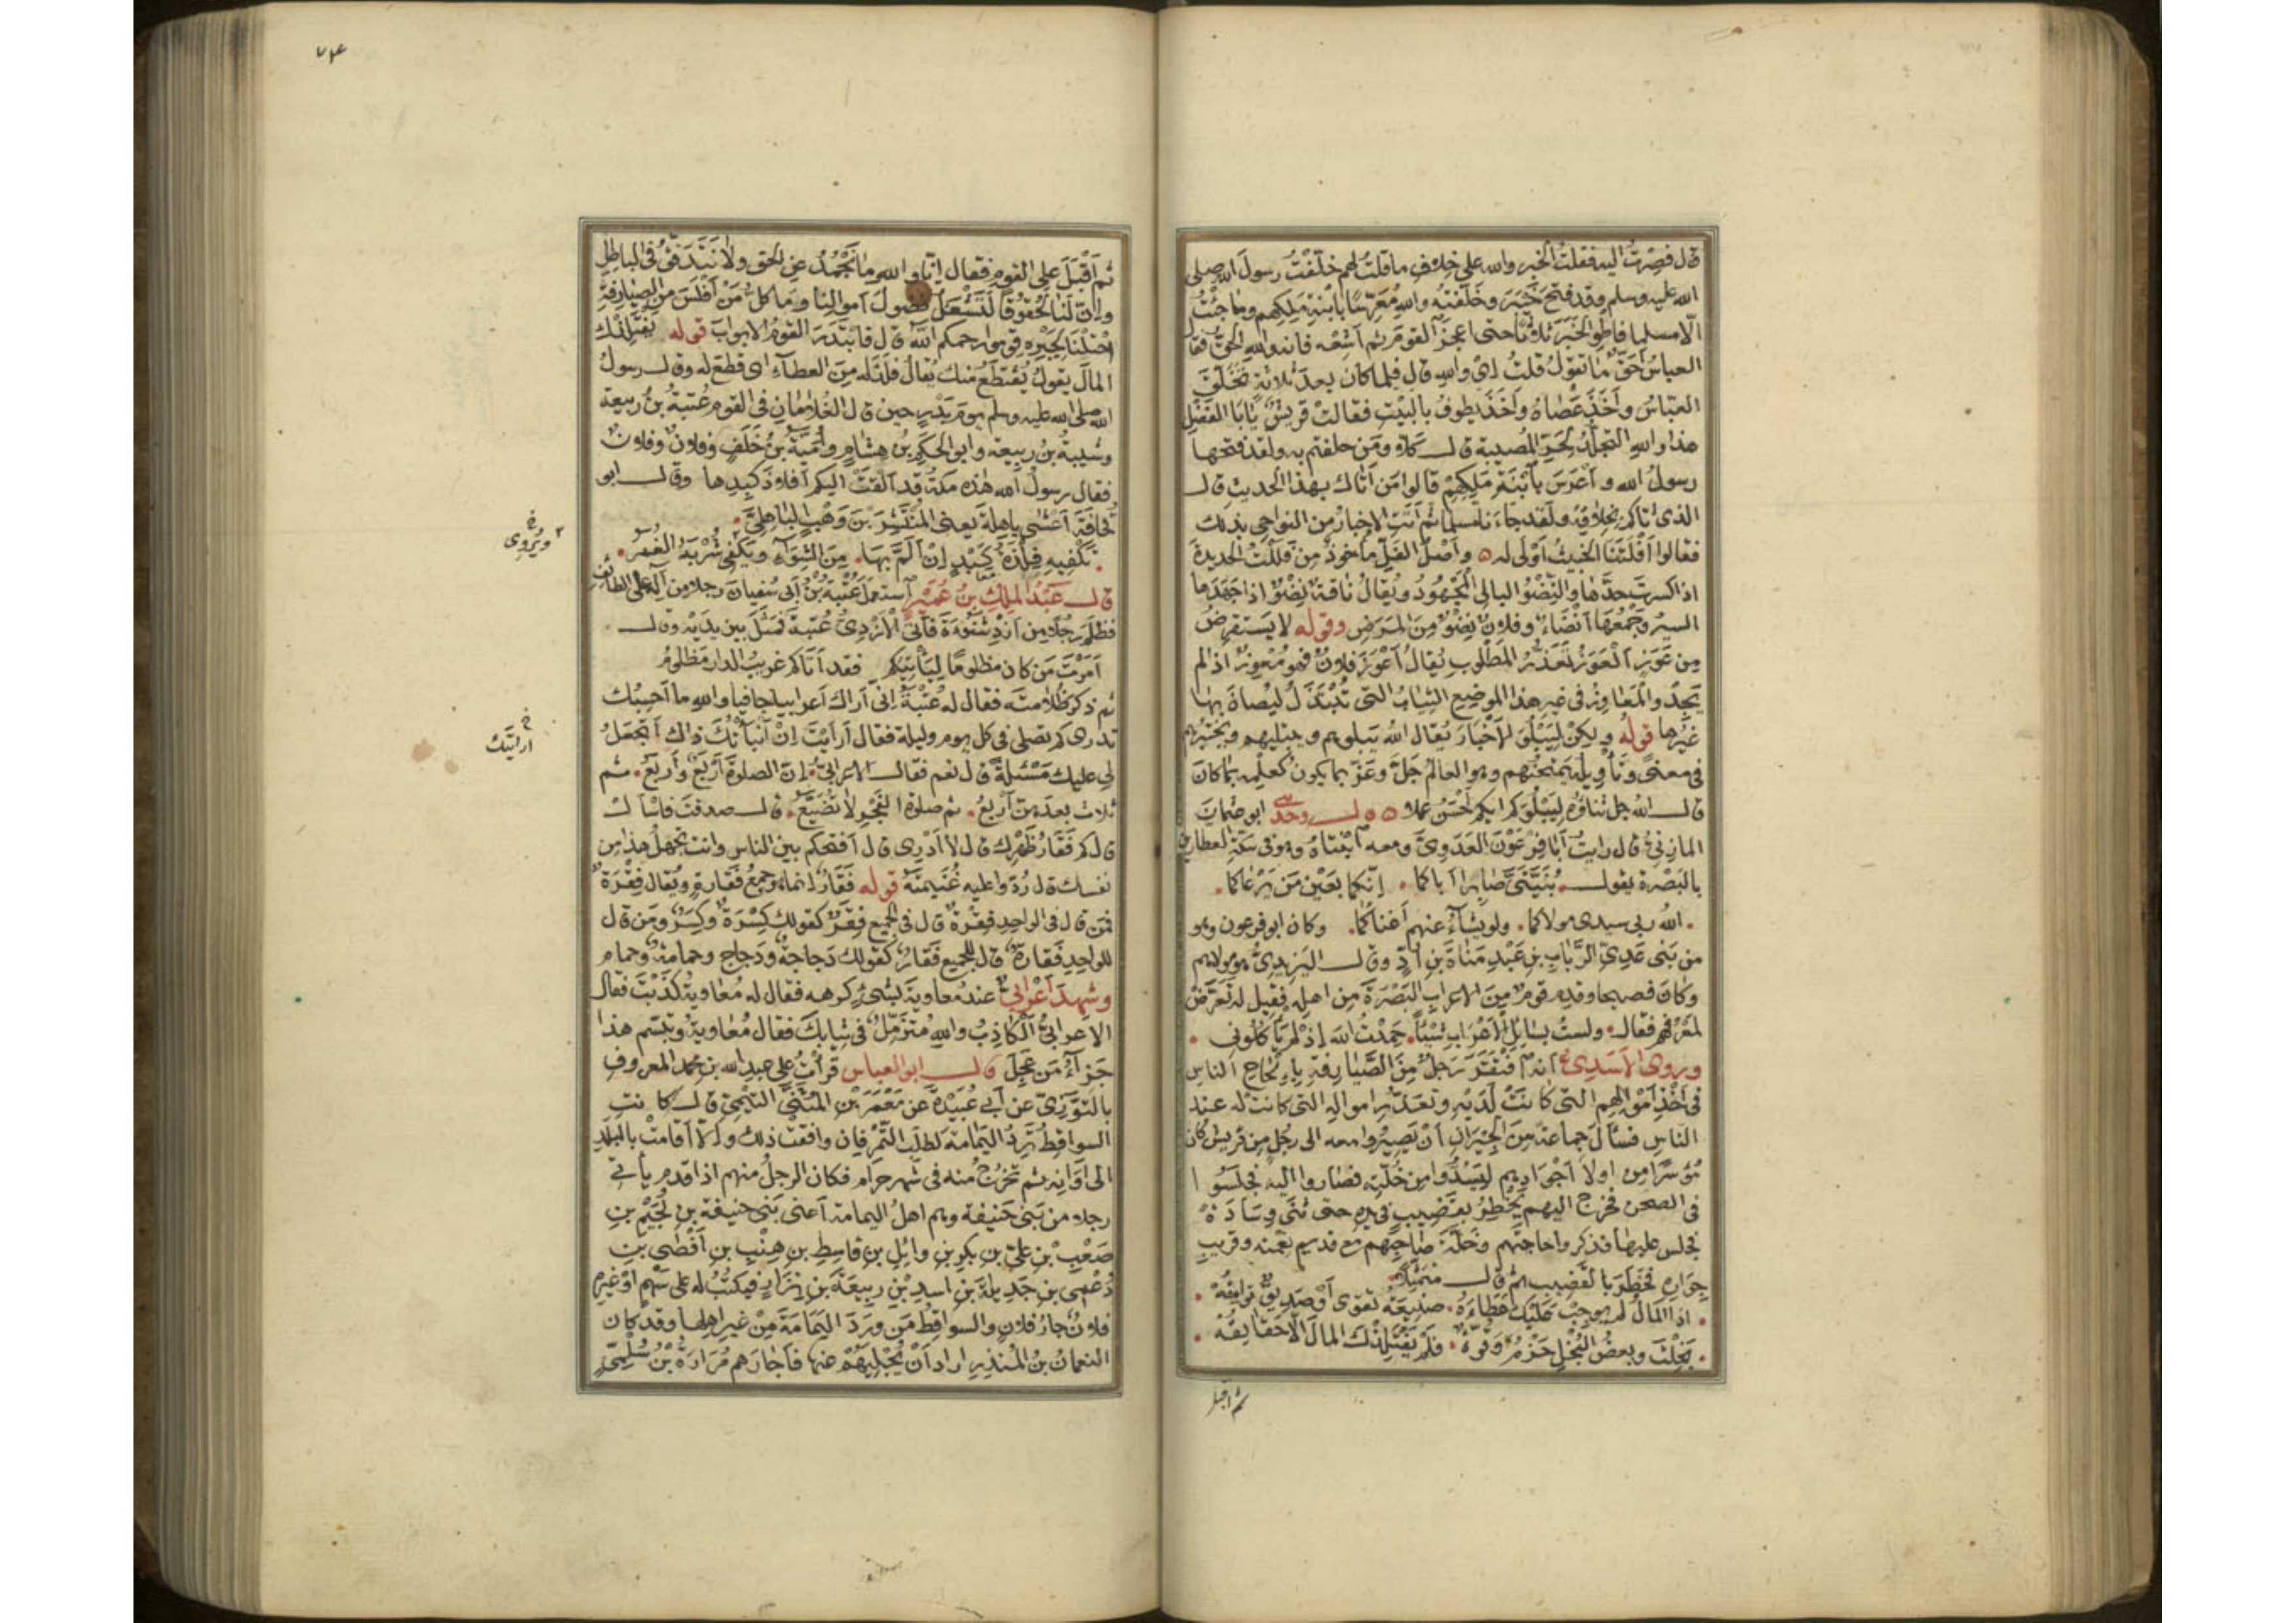 قال فصرت اليه فقلت الخبر والله على خلاف ما قلت لهم خلفت رسول الله صلى
الله عليه وسلم وقد فتح خيبر وخلفته والله معرسا بابنة ملكهم وما جئت
الا مسلما فاطو الخبر ثلاثا حتى اعجز القوم ثم اشعه فانه والله الحق فقال
العباس احق ما تقول قلت اي والله قال فلما كان بعد ثلاثة تخلق
العباس واخذ عصاه واخذ يطوف بالبيت فقالت قريش يابا الفضل
هذا والله التجلد لحر المصيبة قال كلا ومن حلفتم به ولقد فتحها
رسول الله واعرس بابنة ملكهم قالوا من اتاك بهذا الحديث قال
الذي اتاكم بخلافه ولقد جاءنا مسلما ثم اتت الاخبار من النواحي بذلك
فقالوا افلتنا الخبيث اولى له ٥ واصل الفل ماخوذ من فللت الحديدة
اذا كسرت حدها والنضو البالي المجهود ويقال ناقة نضو اذا جهدها
السير وجمعها انضاء وفلان نضو من المرض وقوله لا يستقرض
من عوز العوز تعذر المطلوب يقال اعوز فلان فهو معوز اذا لم
يجد والمعاوز في غير هذا الموضع الثياب التي تبتذل ليصان بها
غيرها قوله ولكن ليبلو الاخبار يقال الله يبلوهم ويبتليهم ويختبرهم
في معنى وتأويله يمتحنهم وهو العالم جل وعز بما يكون كعلمه بما كان
قال الله جل ثناؤه ليبلوكم ايكم احسن عملا ٥ ٥ قال وحدثني ابو عثمان
المازني قال رايت ابا فرعون العدوي ومعه ابنتاه وهو في سكة العطارين
بالبصرة يقول . بنيتي صابرا اباكما . انكما بعين من يرعاكما .
. الله ربي سيدي مولاكما . ولو يشاء عنهم اغناكما . وكان ابو فرعون وهو
من بني عدي الرباب بن عبد مناة بن اد وقال اليزيدي هو مولاهم
وكان فصيحا وقدم قوم من الاعراب البصرة من اهله فقيل له تعرض
لمعروفهم فقال . ولست بسائل الاعراب شيئا . حمدت الله اذ لم ياكلوني .
ويروى الاسدي انه افتقر رجل من الصيارفة بالحاح الناس
في اخذ اموالهم التي كانت لديه وتعذر اموالها التي كانت له عند
الناس فسأل جماعة من الجيران ان يصيروا معه الى رجل من قريش كان
موسرا من اولاد اجوادهم ليسدوا من خلته فصاروا اليه فجلسوا
في الصحن فخرج اليهم يخطر بقضيب في يده حتى ثنى وسادة
فجلس عليها فذكروا حاجتهم وخلة صاحبهم مع قديم نعمته وقريب
جواره فخطر بالقضيب ثم قال متمثلا
. اذا المال لم يوجب عليك عطاءه . صنيعة تقوى او صديق توامقه .
. بخلت وبعض البخل حزم وقوة . فلم يفتلذك المال الا حقائقه .
ثم اقبل
٧٤
ثم اقبل على القوم فقال انا والله ما نجمد عن الحق ولا نتدفق في الباطل
وان لنا لحقوقا لتشغل فضول اموالنا وما كل من افلس من الصيارفة
احتلنا لجبره قوموا رحمكم الله قال فابتدر القوم الابواب قوله يفتلذك
المال يقول يقتطع منك يقال فلذ له من العطاء اي قطع له وقال رسول
الله صلى الله عليه وسلم يوم بدر حين قال الغلامان في القوم عتبة بن ربيعة
وشيبة بن ربيعة وابو الحكم بن هشام وامية بن خلف وفلان وفلان
فقال رسول الله هذه مكة قد القت اليكم افلاذ كبدها وقال ابو
قحافة اعشى باهلة يعني المنتشر بن وهب الباهلي .
. تكفيه فلذة كبد ان الم بها . من الشواء ويكفي شربه الغمر .
ويروى
قال عبد الملك بن عمير استعمل عتبة بن ابي سفيان رجلا من اله على الطائف
فظلم رجلا من ازد شنوءة فاتى الازدي عتبة فمثل بين يديه وقال .
امرت من كان مظلوما ليأتيكم فقد اتاكم غريب الدار مظلوم
ثم ذكر ظلامته فقال له عتبة اني اراك اعرابيا جافيا والله ما احسبك
تدري كم تصلي في كل يوم وليلة فقال ارايت ان انبأتك ذلك اتجعل
ارايتك
لي عليك مسئلة قال نعم فقال الاعرابي . ان الصلوة اربع واربع . ثم
ثلاث بعدهن اربع . ثم صلوة الفجر لا تضيع . قال صدقت فاسأل
قال كم فقار ظهرك قال لا ادري قال افتحكم بين الناس وانت تجهل هذا من
نفسك قال ردوا عليه غنيمته قوله فقار انما هو جمع فقارة ويقال فقرة
فمن قال في الواحد فقرة قال في الجميع فقر كقولك كسرة وكسر ومن قال
للواحد فقارة قال للجميع فقار كقولك دجاجة ودجاج وحمامة وحمام
وشهد اعرابي عند معاوية بشيء كرهه فقال له معاوية كذبت فقال
الاعرابي الكاذب والله متزمل في ثيابك فقال معاوية وتبسم هذا
جزاء من عجل قال ابو العباس قرأت على عبد الله بن محمد المعروف
بالتوزي عن ابي عبيدة عن معمر بن المثنى التيمي قال كانت
السواقط ترد اليمامة لطلب التمر فان وافقت ذلك والا اقامت بالبلد
الى اوانه ثم تخرج منه في شهر حرام فكان الرجل منهم اذا قدم يأتي
رجلا من بني حنيفة وهم اهل اليمامة اعني بني حنيفة بن لجيم بن
صعب بن علي بن بكر بن وائل بن قاسط بن هنب بن افصى بن
دعمى بن جديلة بن اسد بن ربيعة بن نزار فيكتب له على سهم او غيره
فلان جار فلان والسواقط من ورد اليمامة من غير اهلها وقد كان
النعمان بن المنذر اراد ان يجليهم عنها فاجارهم مرارة بن سلمى